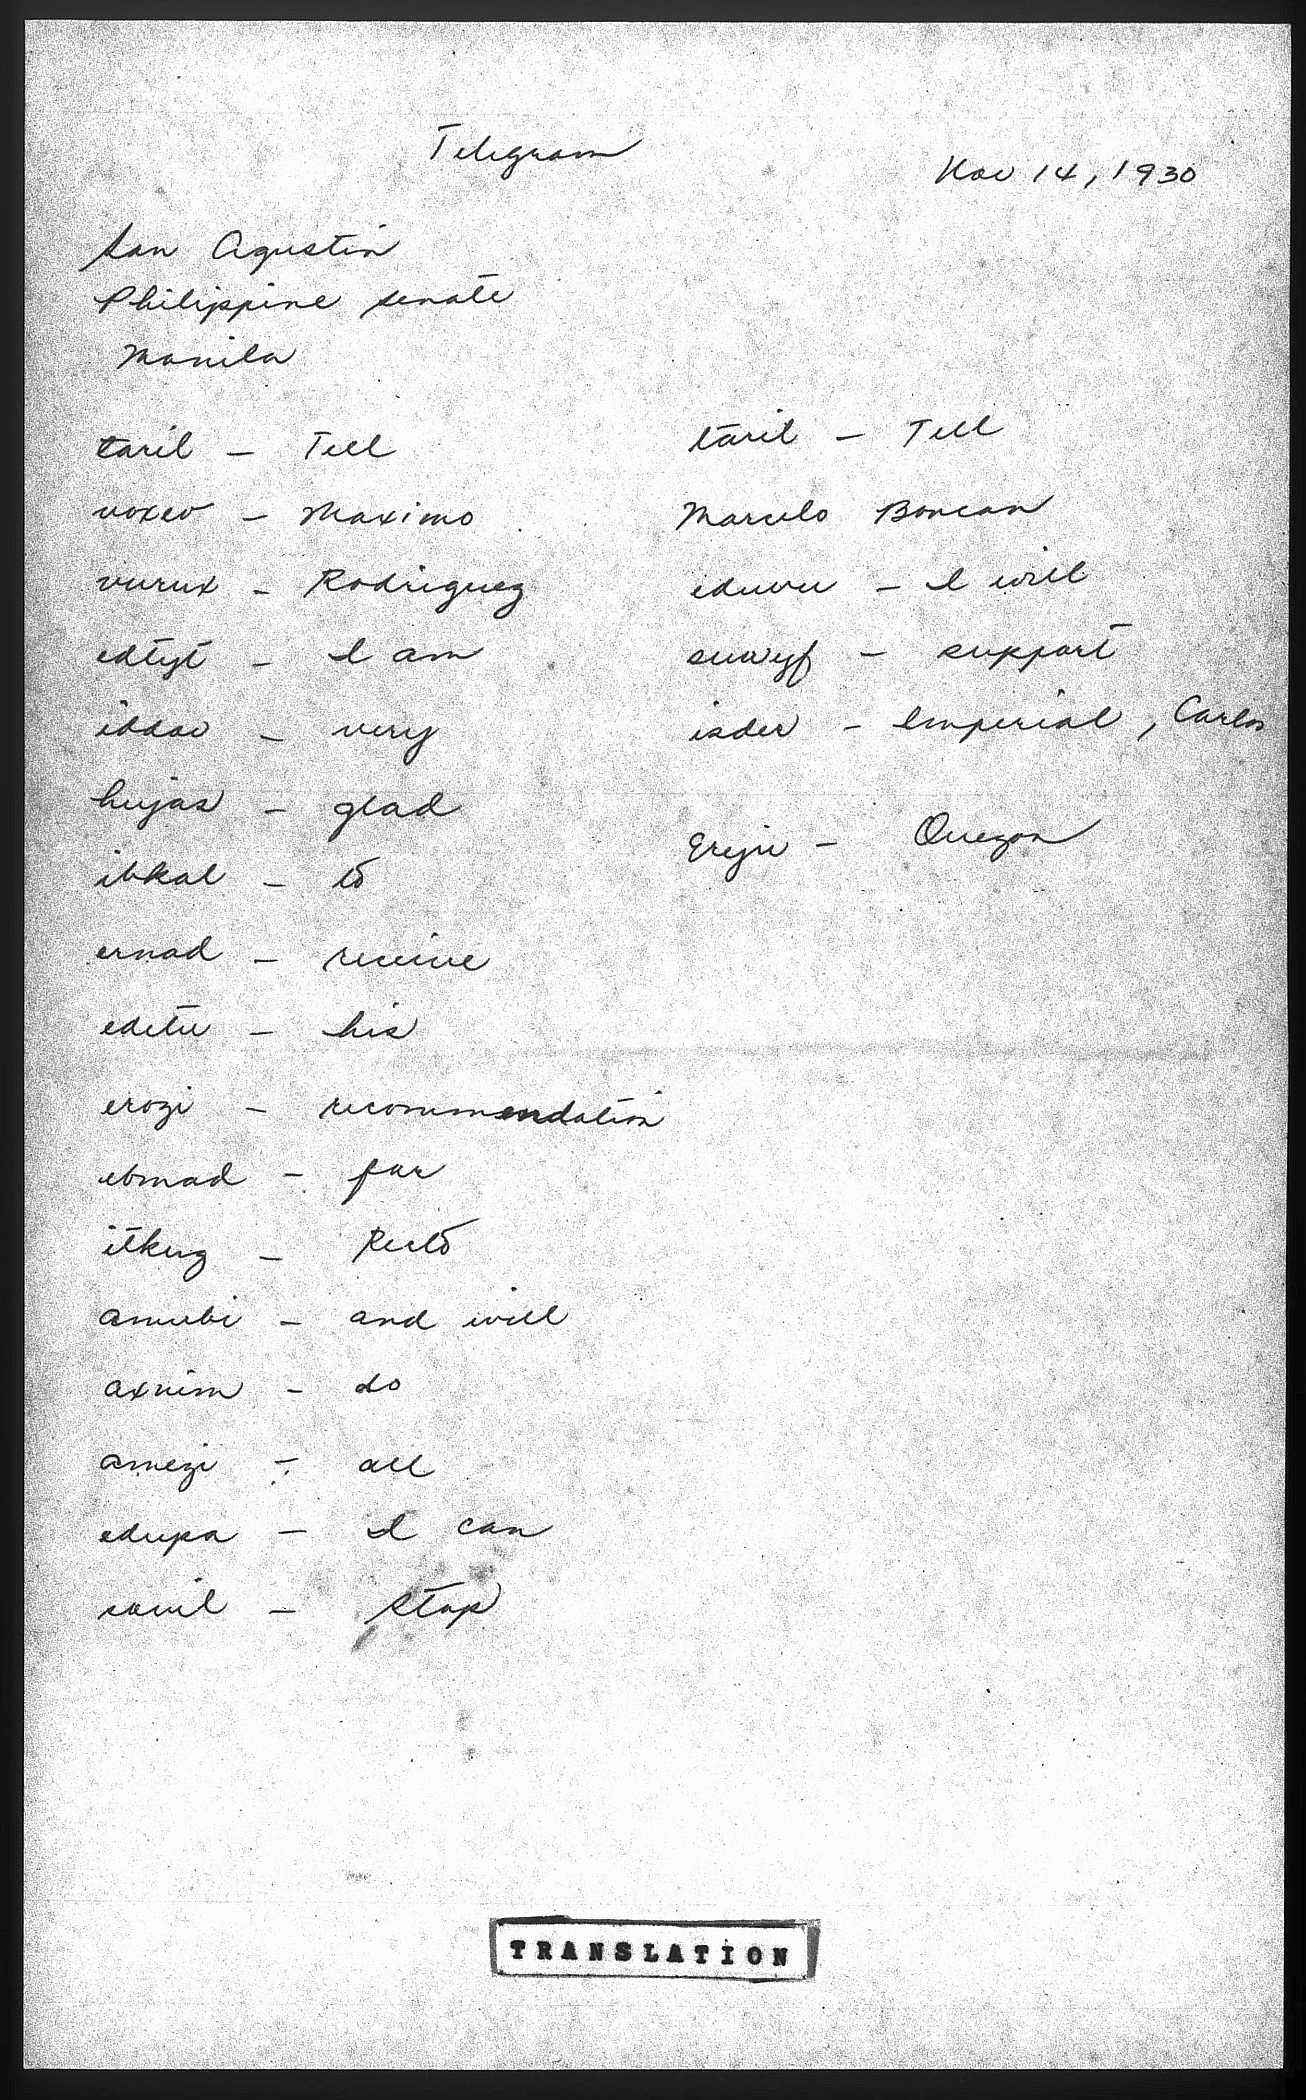 Telegram
Nov 14, 1930
San Agustin
Philippine Senate
Manila
taril - Tell
voxev - Maximo
vurux - Rodriguez
edtyt - I am
iddav - very
hujas - glad
ibkal - to
ernad - receive
edetu - his
erozi - recommendation
ebmad - for
itkug - Recto
amubi - and will
axnim - do
amezi - all
edupa - I can
sovil - Stop
taril - Tell
Marcelo Boncan
eduvu - I will
suwyf - support
isder - Imperial, Carlos
Eryiv - Quezon
TRANSLATION